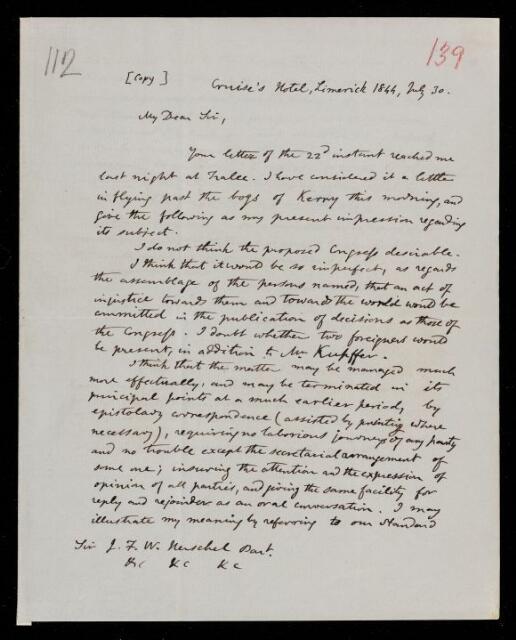 112
139
[Copy]
Cruise's Hotel, Limerick 1844, July 30.
My Dear Sir,
Your letter of the 22d instant reached me
last night at Tralee. I have considered it a little
in flying past the bogs of Kerry this morning, and
give the following as my present impression regarding
its subject.
I do not think the proposed Congress desirable.
I think that it would be so imperfect, as regards
the assemblage of the persons named, that an act of
injustice towards them and towards the world would be
committed in the publication of decisions as those of
the Congress. I doubt whether two foreigners would
be present, in addition to Mr Kupffer.
I think that the matter may be managed much
more effectually, and may be terminated in its
principal points at a much earlier period, by
epistolary correspondence (assisted by printing where
necessary), requiring no laborious journeys of any party
and no trouble except the secretarial arrangement of
some one; insuring the attention and the expression of
opinion of all parties, and giving the same facility for
reply and rejoinder as an oral conversation. I may
illustrate my meaning by referring to our Standard
Sir J. F. W. Herschel Bart.
&c &c &c